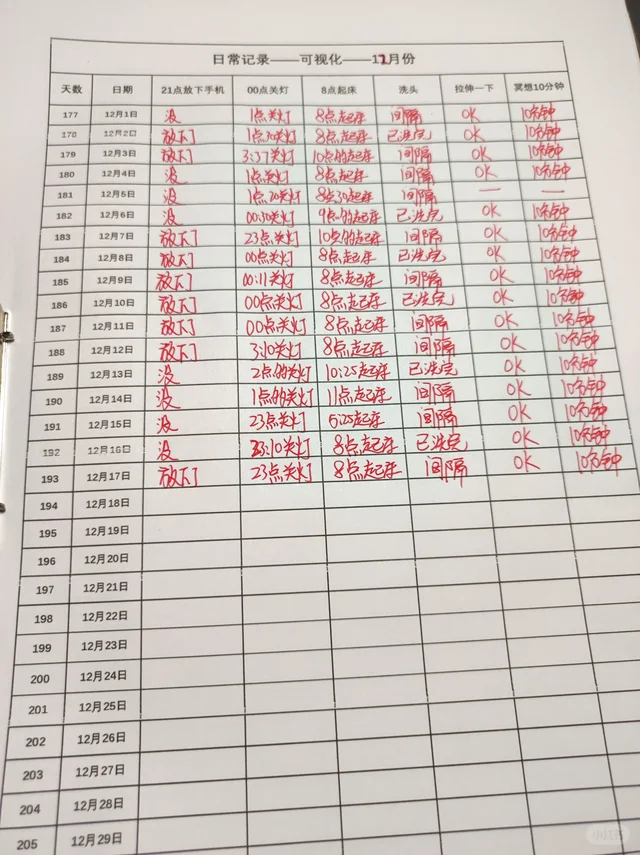 日常记录——可视化——12月份
天数 日期 21点放下手机 00点关灯 8点起床 洗头 拉伸一下 冥想10分钟
177 12月1日 没 1点关灯 8点起床 间隔 OK 10分钟
178 12月2日 放下 1点30关灯 8点起床 已洗完 OK 10分钟
179 12月3日 放下 3:37关灯 10点的起床 间隔 OK 10分钟
180 12月4日 没 1点关灯 8点起床 间隔 OK 10分钟
181 12月5日 没 1点20关灯 8点30起床 间隔 — —
182 12月6日 没 00:30关灯 9点的起床 已洗完 OK 10分钟
183 12月7日 放下 23点关灯 10点的起床 间隔 OK 10分钟
184 12月8日 放下 00点关灯 8点起床 已洗完 OK 10分钟
185 12月9日 放下 00:11关灯 8点起床 间隔 OK 10分钟
186 12月10日 放下 00点关灯 8点起床 已洗完 OK 10分钟
187 12月11日 放下 00点关灯 8点起床 间隔 OK 10分钟
188 12月12日 放下 3:10关灯 8点起床 间隔 OK 10分钟
189 12月13日 没 2点的关灯 10:25起床 已洗完 OK 10分钟
190 12月14日 没 1点的关灯 11点起床 间隔 OK 10分钟
191 12月15日 没 23点关灯 6:25起床 间隔 OK 10分钟
192 12月16日 没 23:10关灯 8点起床 已洗完 OK 10分钟
193 12月17日 放下 23点关灯 8点起床 间隔 OK 10分钟
194 12月18日
195 12月19日
196 12月20日
197 12月21日
198 12月22日
199 12月23日
200 12月24日
201 12月25日
202 12月26日
203 12月27日
204 12月28日
205 12月29日